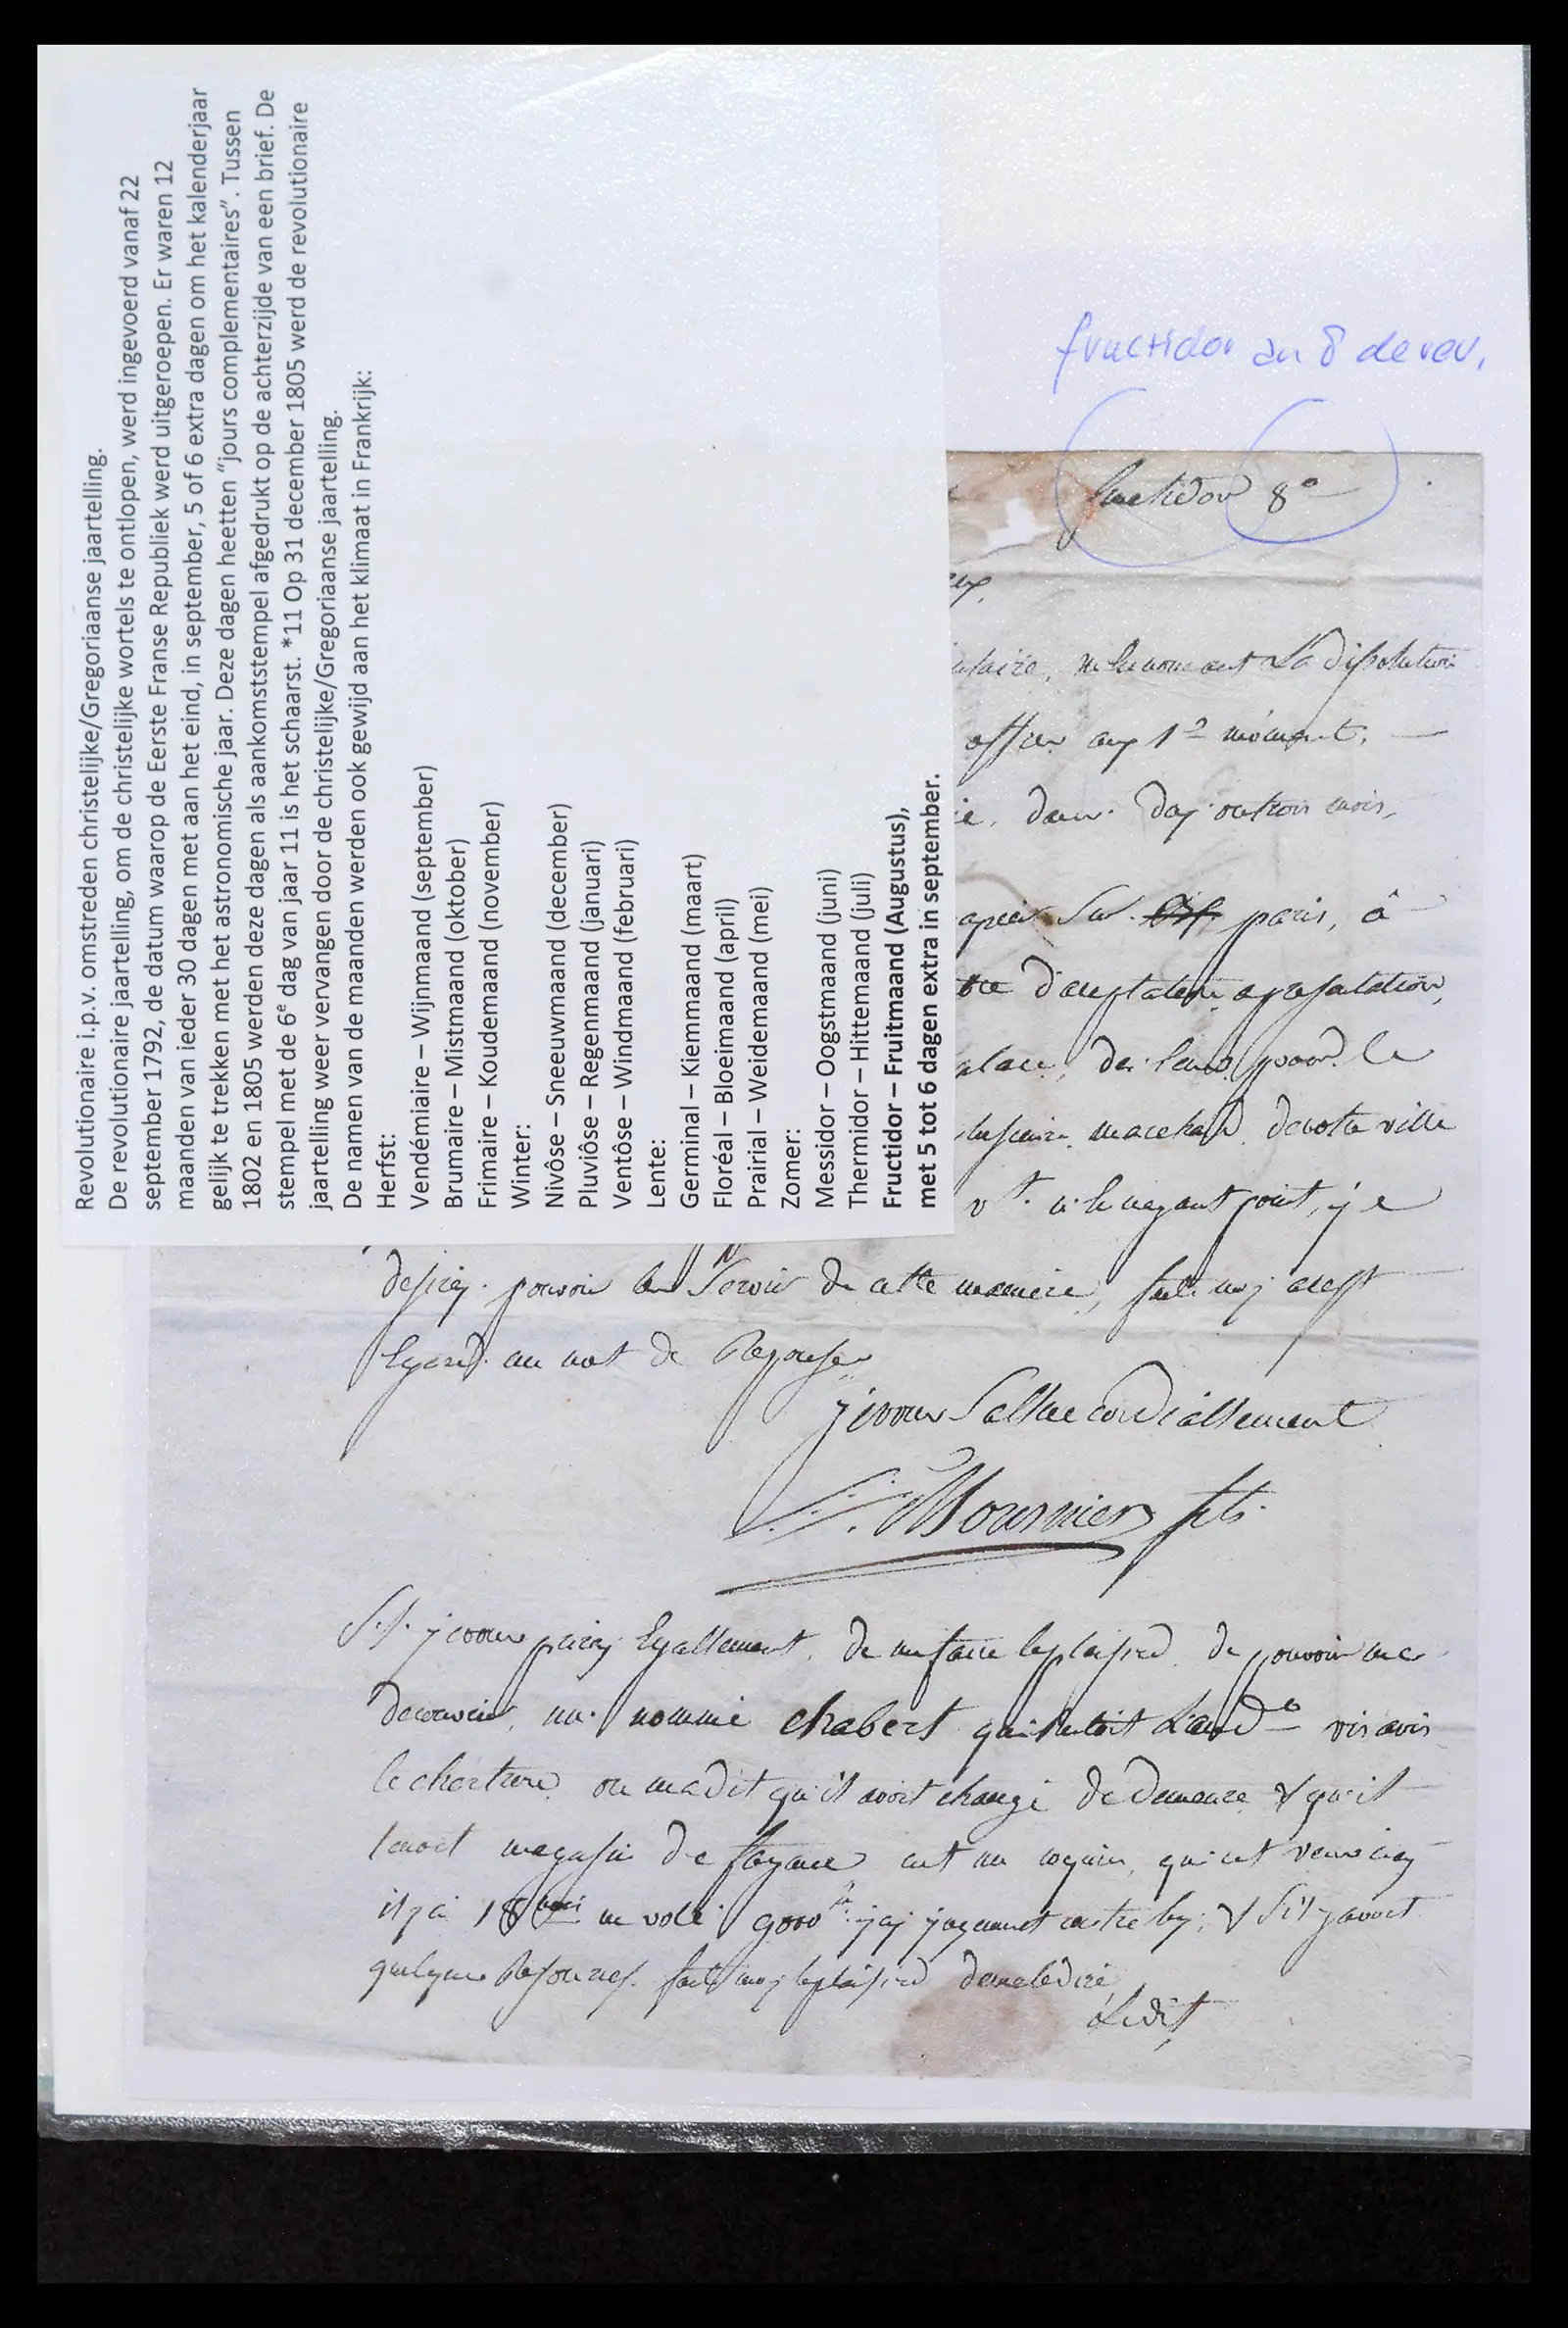 Revolutionaire i.p.v. omstreden christelijke/Gregoriaanse jaartelling.
De revolutionaire jaartelling, om de christelijke wortels te ontlopen, werd ingevoerd vanaf 22
september 1792, de datum waarop de Eerste Franse Republiek werd uitgeroepen. Er waren 12
maanden van ieder 30 dagen met aan het eind, in september, 5 of 6 extra dagen om het kalenderjaar
gelijk te trekken met het astronomische jaar. Deze dagen heetten “jours complementaires”. Tussen
1802 en 1805 werden deze dagen als aankomststempel afgedrukt op de achterzijde van een brief. De
stempel met de 6e dag van jaar 11 is het schaarst. *11 Op 31 december 1805 werd de revolutionaire
jaartelling weer vervangen door de christelijke/Gregoriaanse jaartelling.
De namen van de maanden werden ook gewijd aan het klimaat in Frankrijk:
Herfst:
Vendémiaire – Wijnmaand (september)
Brumaire – Mistmaand (oktober)
Frimaire – Koudemaand (november)
Winter:
Nivôse – Sneeuwmaand (december)
Pluviôse – Regenmaand (januari)
Ventôse – Windmaand (februari)
Lente:
Germinal – Kiemmaand (maart)
Floréal – Bloeimaand (april)
Prairial – Weidemaand (mei)
Zomer:
Messidor – Oogstmaand (juni)
Thermidor – Hittemaand (juli)
Fructidor – Fruitmaand (Augustus),
met 5 tot 6 dagen extra in september.
fructidor an 8 de rev.
fructidor 8°
La dissolution
offier aux 1er moment,
dans ou trois mois,
papier sur paris, â
d'acceptation
place, de le
marchand de votre ville
point, je
pouvoir servir de cette maniere,
Egard un mot de Reponse
je vous Sallue cordiallement
Mournier fils
P.S. je vous priez Egallement de me faire le plaisir de pouvoir me
decouvrir un nommé chabert vis avis
on ma dit qu'il avoit changé de demeure & qu'il
tenoit magasin de fayance est un coquin, qui est venu icy
il y a 18 mois me volé jugement contre luy, & s'il y avoit
quelque Resources. faite moy le plaisir de me le dire,
Ledit